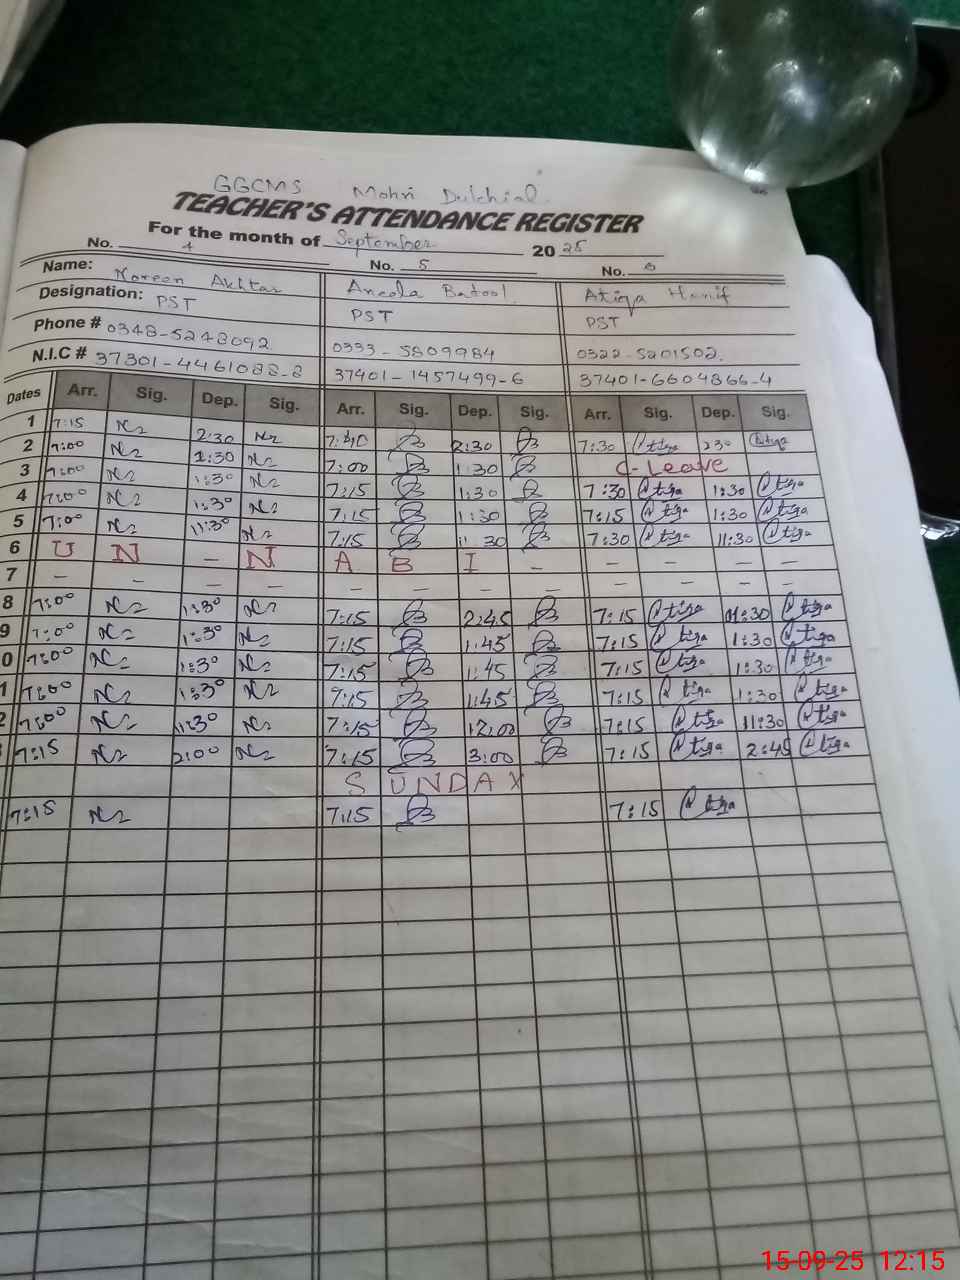 GGCMS Mohri Dulchial.
TEACHER'S ATTENDANCE REGISTER
For the month of September 2025
No. 4 No. 5 No. 6
Name: Noreen Akhtar Aneela Batool. Atiqa Hanif
Designation: PST PST PST
Phone # 0348-5248092 0333-5809984 0322-5201502.
N.I.C # 37301-4461088-8 37401-1457499-6 37401-6604866-4
Dates Arr. Sig. Dep. Sig. Arr. Sig. Dep. Sig. Arr. Sig. Dep. Sig.
1 7:15 2:30 7:40 2:30 7:30 Atiqa 230 Atiqa
2 7:00 1:30 7:00 1:30 C-Leave
3 7:00 1:30 7:15 1:30 7:30 Atiqa 1:30 Atiqa
4 7:00 1:30 7:15 1:30 7:15 Atiqa 1:30 Atiqa
5 7:00 11:30 7:15 11:30 7:30 Atiqa 11:30 Atiqa
6 U N - N A B I - - - - -
7 - - - - - - - - - - - -
8 7:00 1:30 7:15 2:45 7:15 Atiqa 01:30 Atiqa
9 7:00 1:30 7:15 1:45 7:15 Atiqa 1:30 Atiqa
0 7:00 1:30 7:15 1:45 7:15 Atiqa 1:30 Atiqa
1 7:00 1:30 7:15 1:45 7:15 Atiqa 1:30 Atiqa
2 7:00 11:30 7:15 12:00 7:15 Atiqa 11:30 Atiqa
7:15 2:00 7:15 3:00 7:15 Atiqa 2:45 Atiqa
SUNDAY
7:15 7:15 7:15 Atiqa
15-09-25 12:15